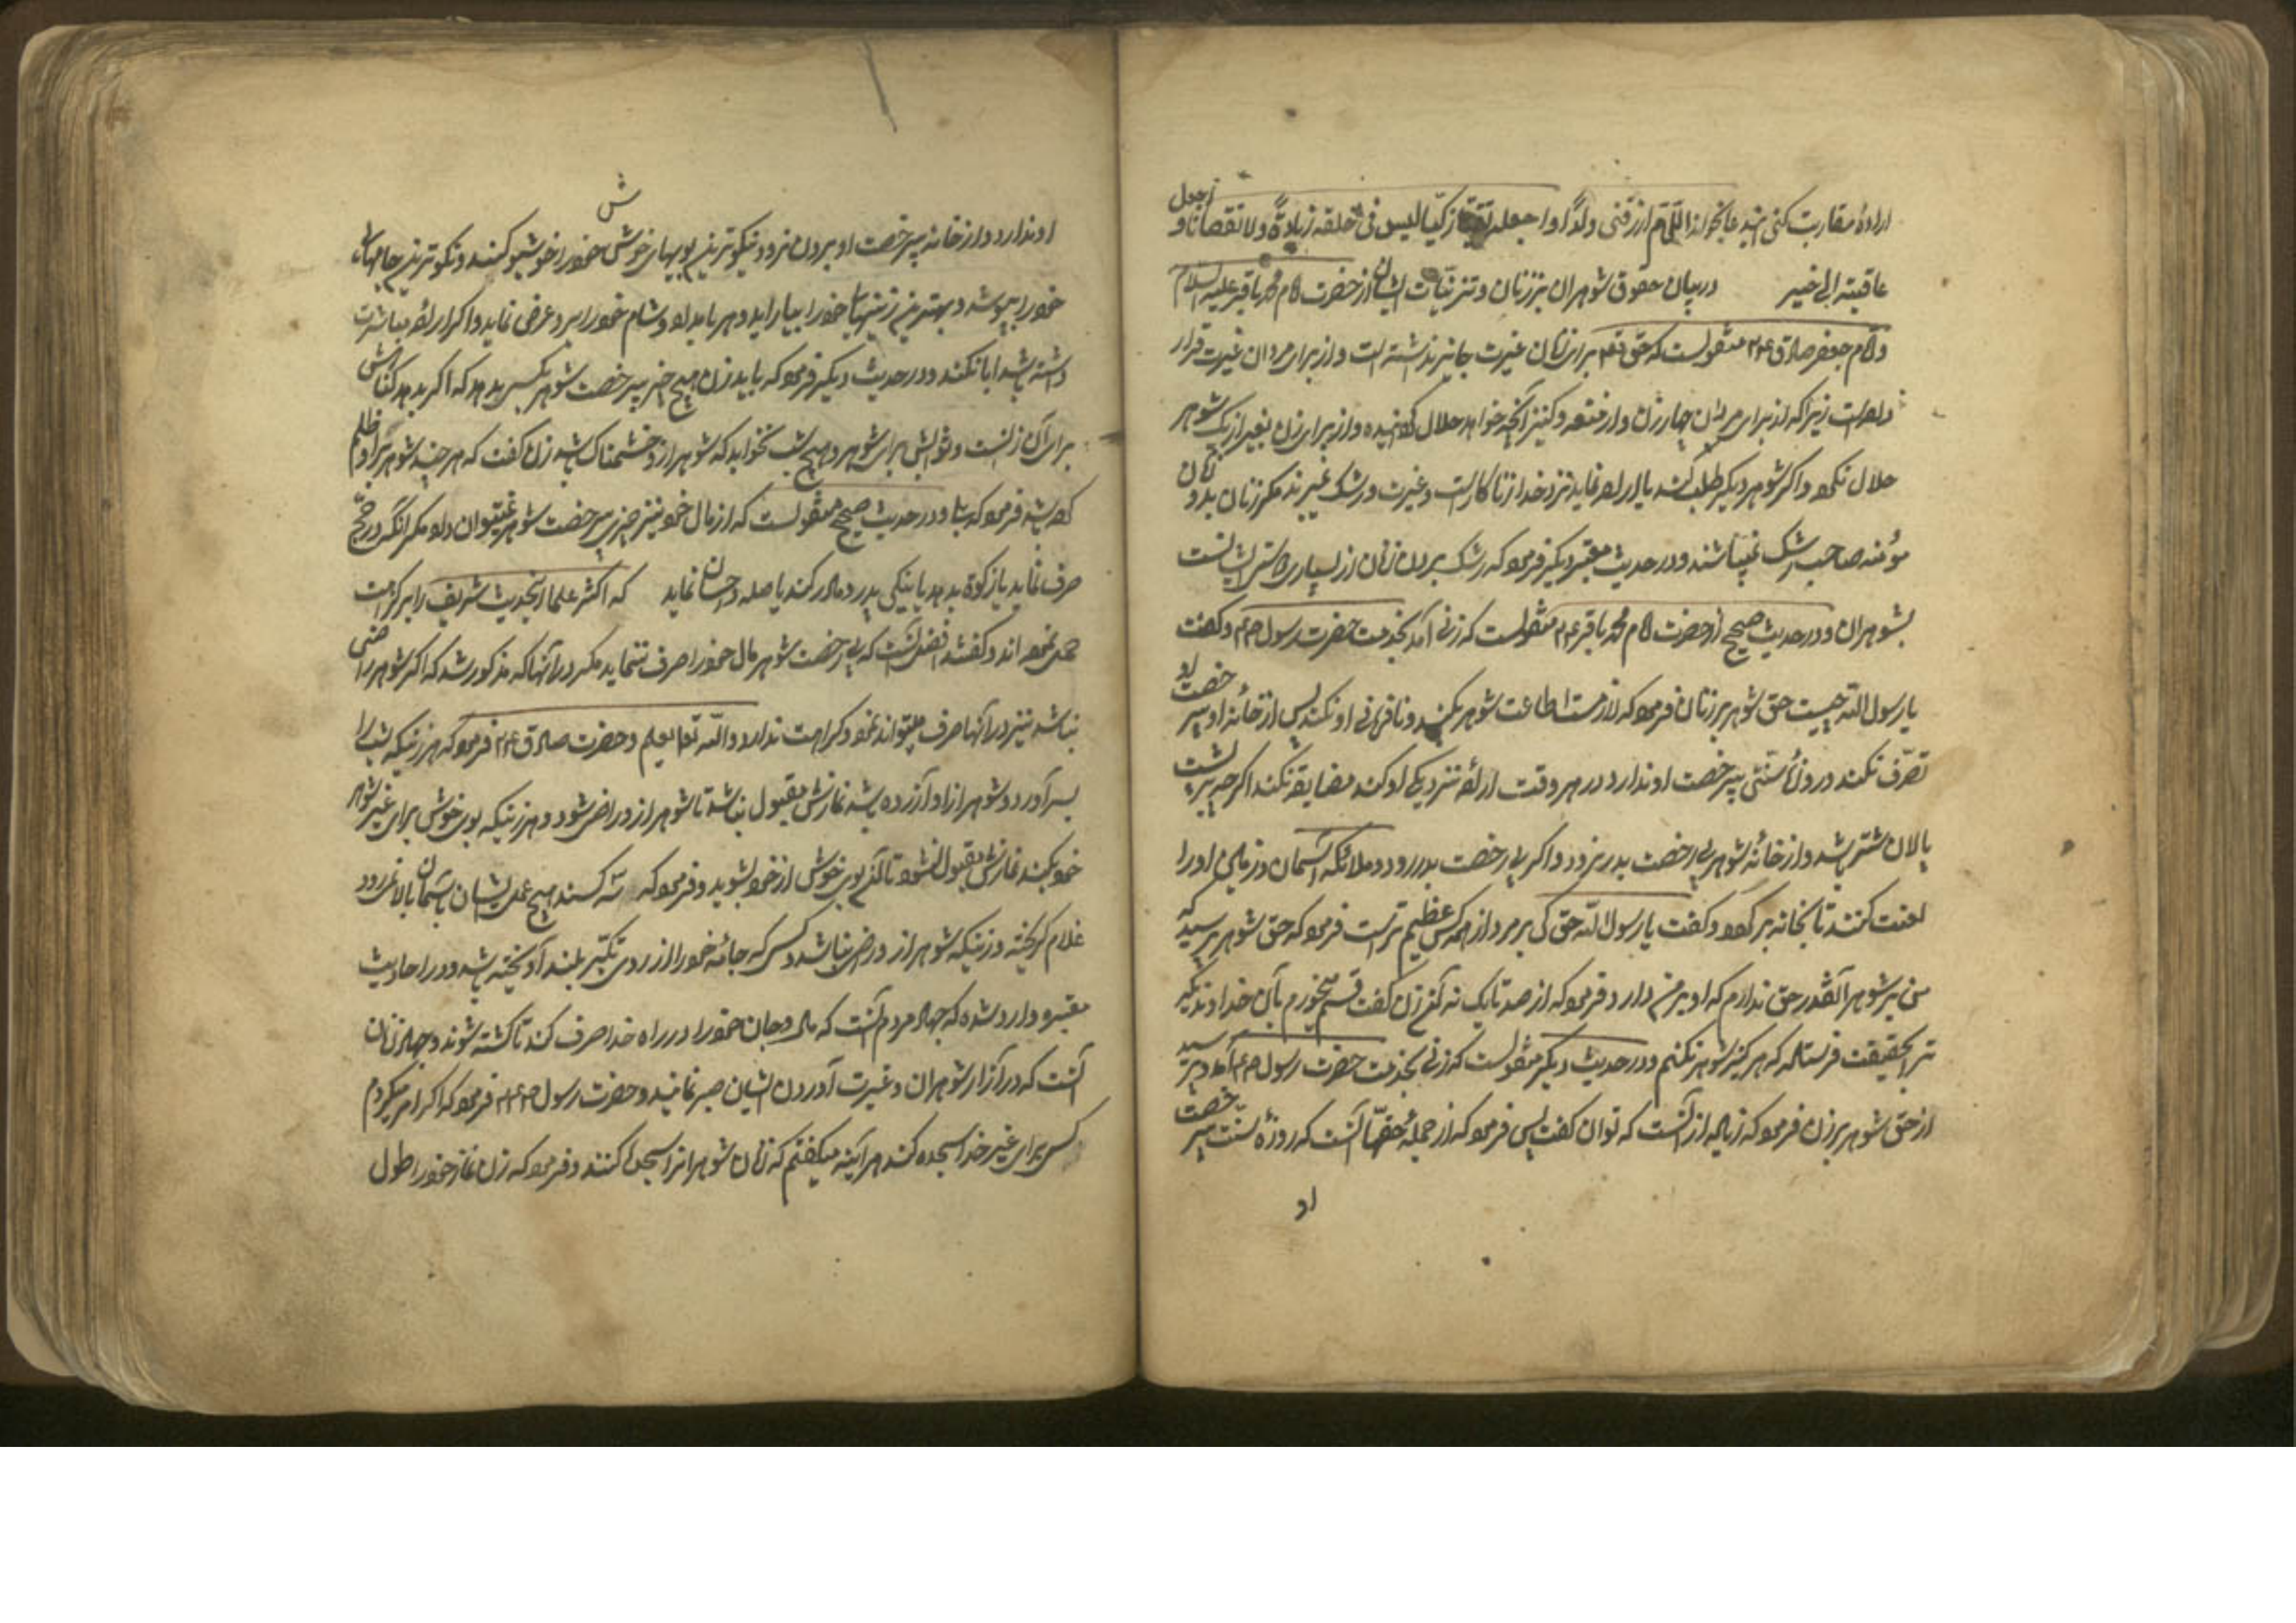 ارادهٔ مقاربت کنی این دعا بخوان اللهم ارزقنی ولدا واجعله تقیا زکیا لیس فی خلقه زیادة ولا نقصان واجعل
عاقبته الی خیر در بیان حقوق شوهران بر زنان و از حضرت امام محمد باقر علیه السلام
و امام جعفر صادق ۲۴ منقولست که حق تع برای زنان غیرت جایز نداشته است و از برای مردان غیرت قرار
داده است زیرا که از برای مردان چهار زن و از متعه و کنیز آنچه خواهد حلال کردانیده و از برای زن بغیر از یک شوهر
حلال نکرده و اگر شوهر دیگر طلب کند یا اراده نماید نزد خدا زناکار است و غیرت و رشک نمیبرند مگر زنان بد و زنان
مؤمنه صاحب رشک نمیباشند و در حدیث معتبر دیگر فرمود که رشک بردن زنان از بسیاری دوستی ایشانست
بشوهران و در حدیث صحیح از حضرت امام محمد باقر ۲۴ منقولست که زنی آمد بخدمت حضرت رسول ص و گفت
یا رسول الله چیست حق شوهر بر زنان فرمود که لازمست اطاعت شوهر بکند و نافرمانی او نکند پس از خانه او بیرخصت او
تصرف نکند و روزهٔ سنتی بیرخصت او ندارد و در هر وقت اراده نزدیکی او کند مضایقه نکند اگر چه بر پشت
پالان شتر باشد و از خانهٔ شوهر بی رخصت بدر نرود و اگر بی رخصت بدر رود ملائکه آسمان و زمین او را
لعنت کنند تا بخانه برگردد و گفت یا رسول الله حق کی بر مرد از همه کس عظیم تر است فرمود که حق شوهر پرسید که
من بر شوهر آنقدر حق ندارم که او بر من دارد فرمود که از صد تا یک نه آنزن گفت قسم میخورم بآن خداوندیکه
ترا بحقیقت فرستاده که هرگز شوهر نکنم و در حدیث دیگر منقولست که زنی بخدمت حضرت رسول ص آمد و پرسید
از حق شوهر بر زن فرمود که زیاده از آنست که توان گفت پس فرمود که از جمله حقها آنست که روزهٔ سنت بیرخصت
او
او ندارد و از خانه بیرخصت او بیرون نرود و نیکوترین بویهای خوش خود را خوشبو کند و نیکوترین جامهای
خود را بپوشد و بهترین زینتها خود را بیاراید و هر بامداد و شام خود را بر او عرض نماید و اگر اراده مباشرت
داشته باشد ابا نکند و در حدیث دیگر فرمود که باید زن هیچ چیز بیرخصت شوهر بکس ندهد که اگر بدهد گناهش
برای آن زنست و ثوابش برای شوهر و هیچ شب نخوابد که شوهر از او خشمناک باشد زن گفت که هر چند شوهر بر او ظلم
کرده باشد فرمود که بلی و در حدیث صحیح منقولست که از مال خود نیز چیزی بیرخصت شوهر نمیتوان داد مگر آنکه در حج
صرف نماید یا زکوة بدهد یا نیکی بپدر و مادر کند یا صله و احسان نماید که اکثر علما اینحدیث شریف را بر کراهت
حمل نموده اند و گفته اند افضل آنست که بی رخصت شوهر مال خود را صرف ننماید مگر در آنها که مذکور شد که اگر شوهر راضی
نباشد نیز در آنها صرف میتواند نمود و کراهت ندارد والله تعالی یعلم و حضرت صادق ۲۴ فرمود که هر زنیکه شب را
بسر آورد و شوهر از او آزرده باشد نمازش مقبول نباشد تا شوهر از او راضی شود و هر زنیکه بوی خوش برای غیر شوهر
خود بکند نمازش مقبول نشود تا آن بوی خوش از خود بشوید و فرمود که سه کسند هیچ عمل ایشان باسمان بالا نمیرود
غلام گریخته و زنیکه شوهر از او راضی نباشد و کسی که جامه خود را از روی تکبر بلند آویخته باشد و در احادیث
معتبره وارد شده که جهاد مردم آنست که مال و جان خود را در راه خدا صرف کند تا کشته شوند و جهاد زنان
آنست که در آزار شوهران و غیرت آوردن ایشان صبر نمایند و حضرت رسول ص فرمود که اگر امر میکردم
کسی برای غیر خدا سجده کند هرآینه میگفتم که زنان شوهرانرا سجده کنند و فرمود که زن نماز خود را طول